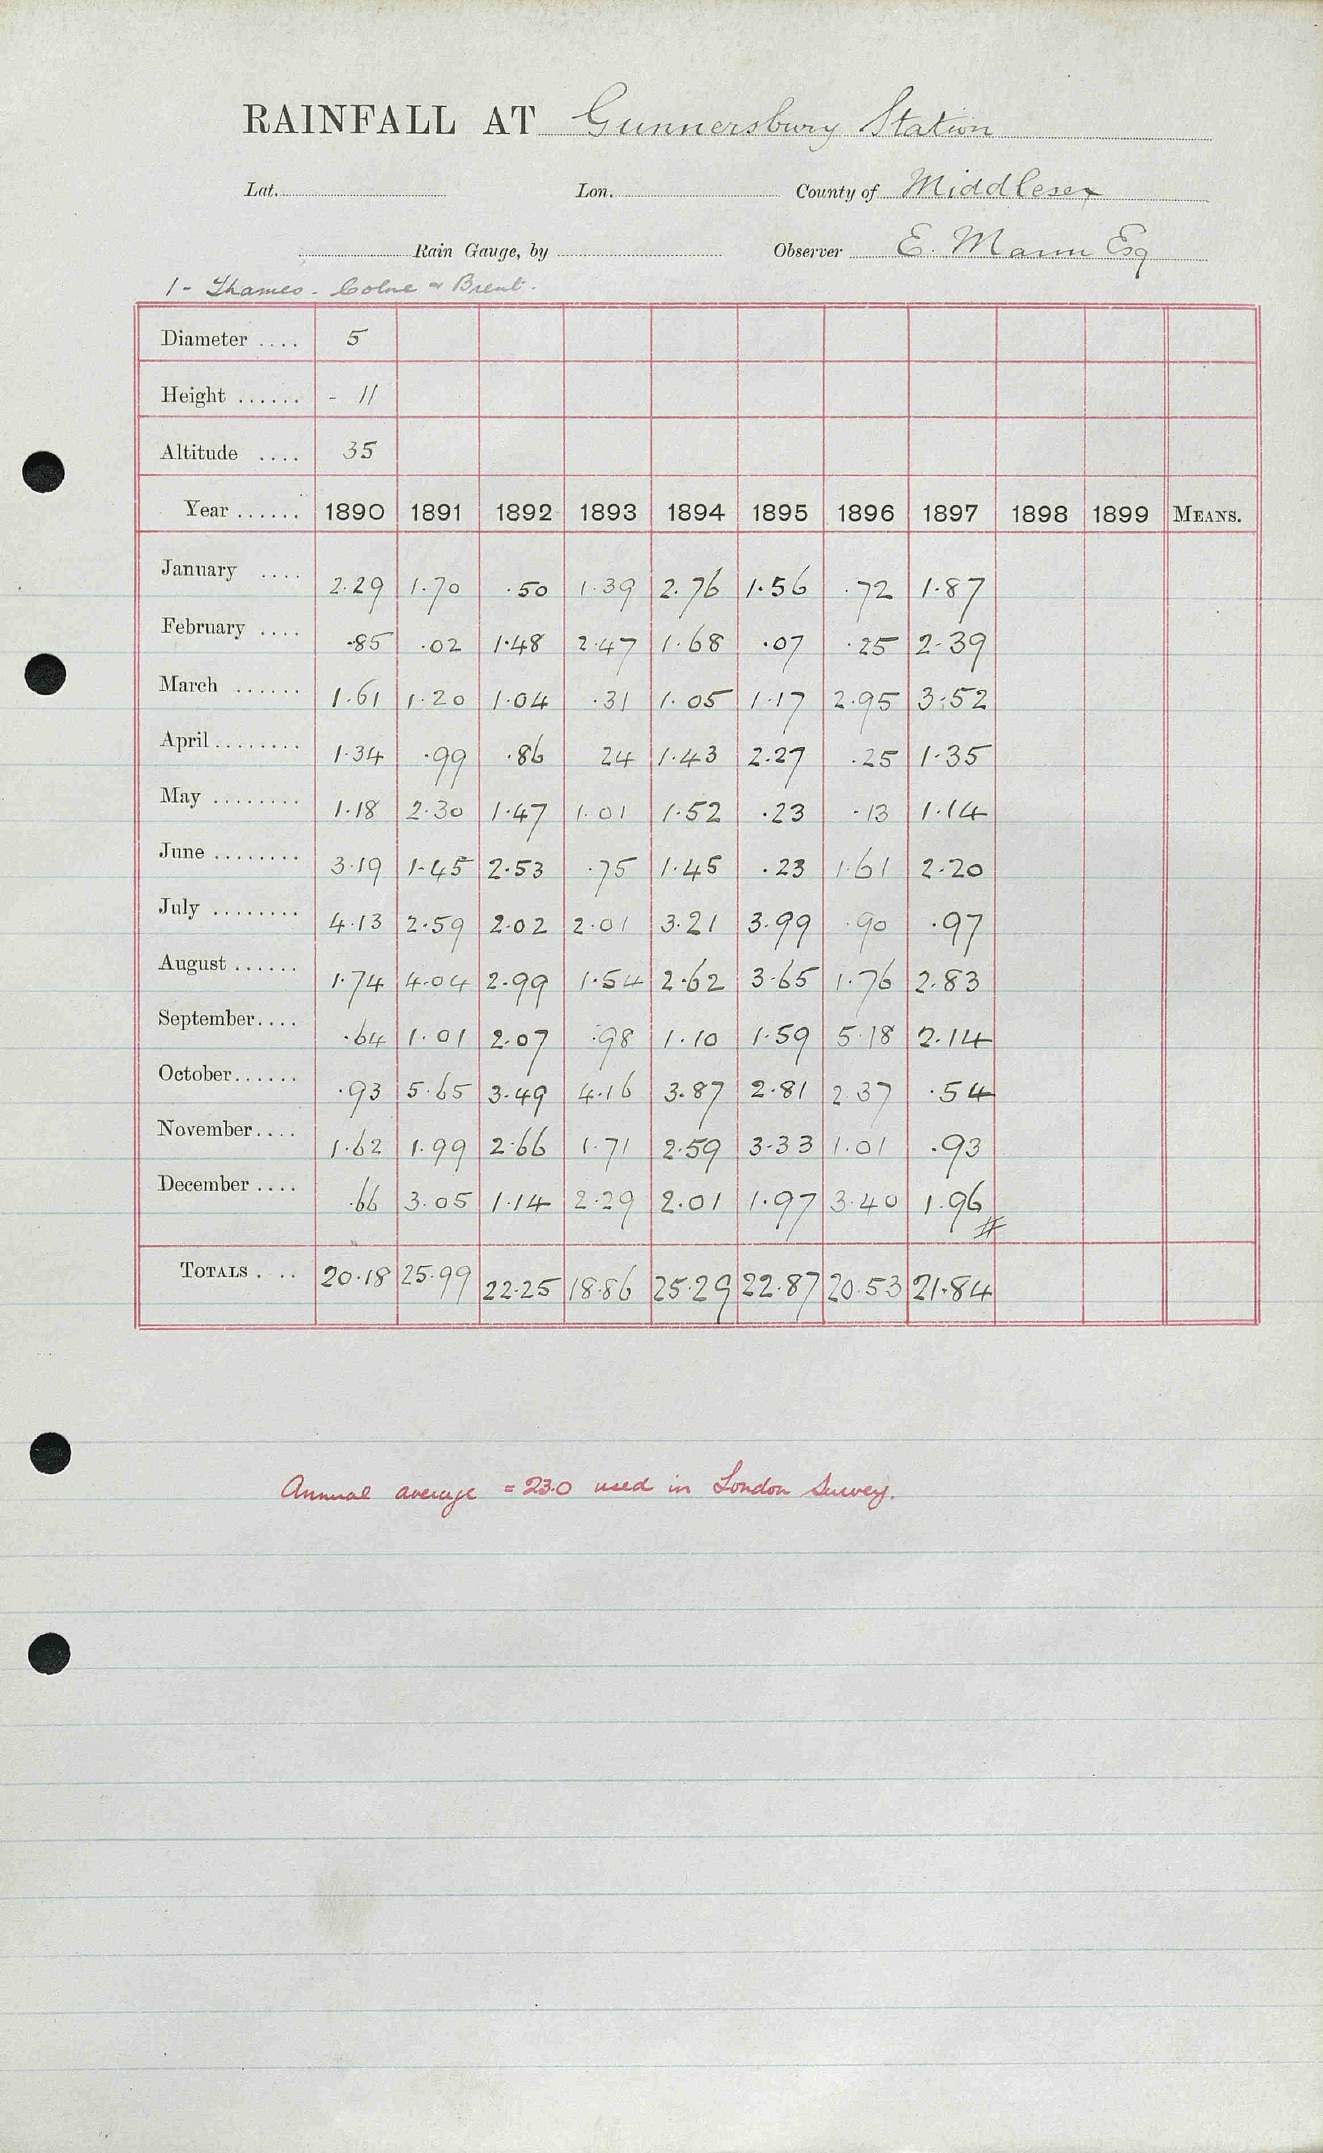 RAINFALL AT Gunnersbury Station
Lat. Lon. County of Middlesex
Rain Gauge, by Observer E. Mann Esq
1 - Thames - Colne & Brent.
Diameter .... 5
Height ...... - 11
Altitude .... 35
Year ...... 1890 1891 1892 1893 1894 1895 1896 1897 1898 1899 MEANS.
January .... 2.29 1.70 .50 1.39 2.76 1.56 .72 1.87
February .... .85 .02 1.48 2.47 1.68 .07 .25 2.39
March ...... 1.61 1.20 1.04 .31 1.05 1.17 2.95 3.52
April ........ 1.34 .99 .86 24 1.43 2.27 .25 1.35
May ........ 1.18 2.30 1.47 1.01 1.52 .23 .13 1.14
June ........ 3.19 1.45 2.53 .75 1.45 .23 1.61 2.20
July ........ 4.13 2.59 2.02 2.01 3.21 3.99 .90 .97
August ...... 1.74 4.04 2.99 1.54 2.62 3.65 1.76 2.83
September .... .64 1.01 2.07 .98 1.10 1.59 5.18 2.14
October ...... .93 5.65 3.49 4.16 3.87 2.81 2.37 .54
November .... 1.62 1.99 2.66 1.71 2.59 3.33 1.01 .93
December .... .66 3.05 1.14 2.29 2.01 1.97 3.40 1.96 #
TOTALS .... 20.18 25.99 22.25 18.86 25.29 22.87 20.53 21.84
Annual average = 23.0 used in London Survey.